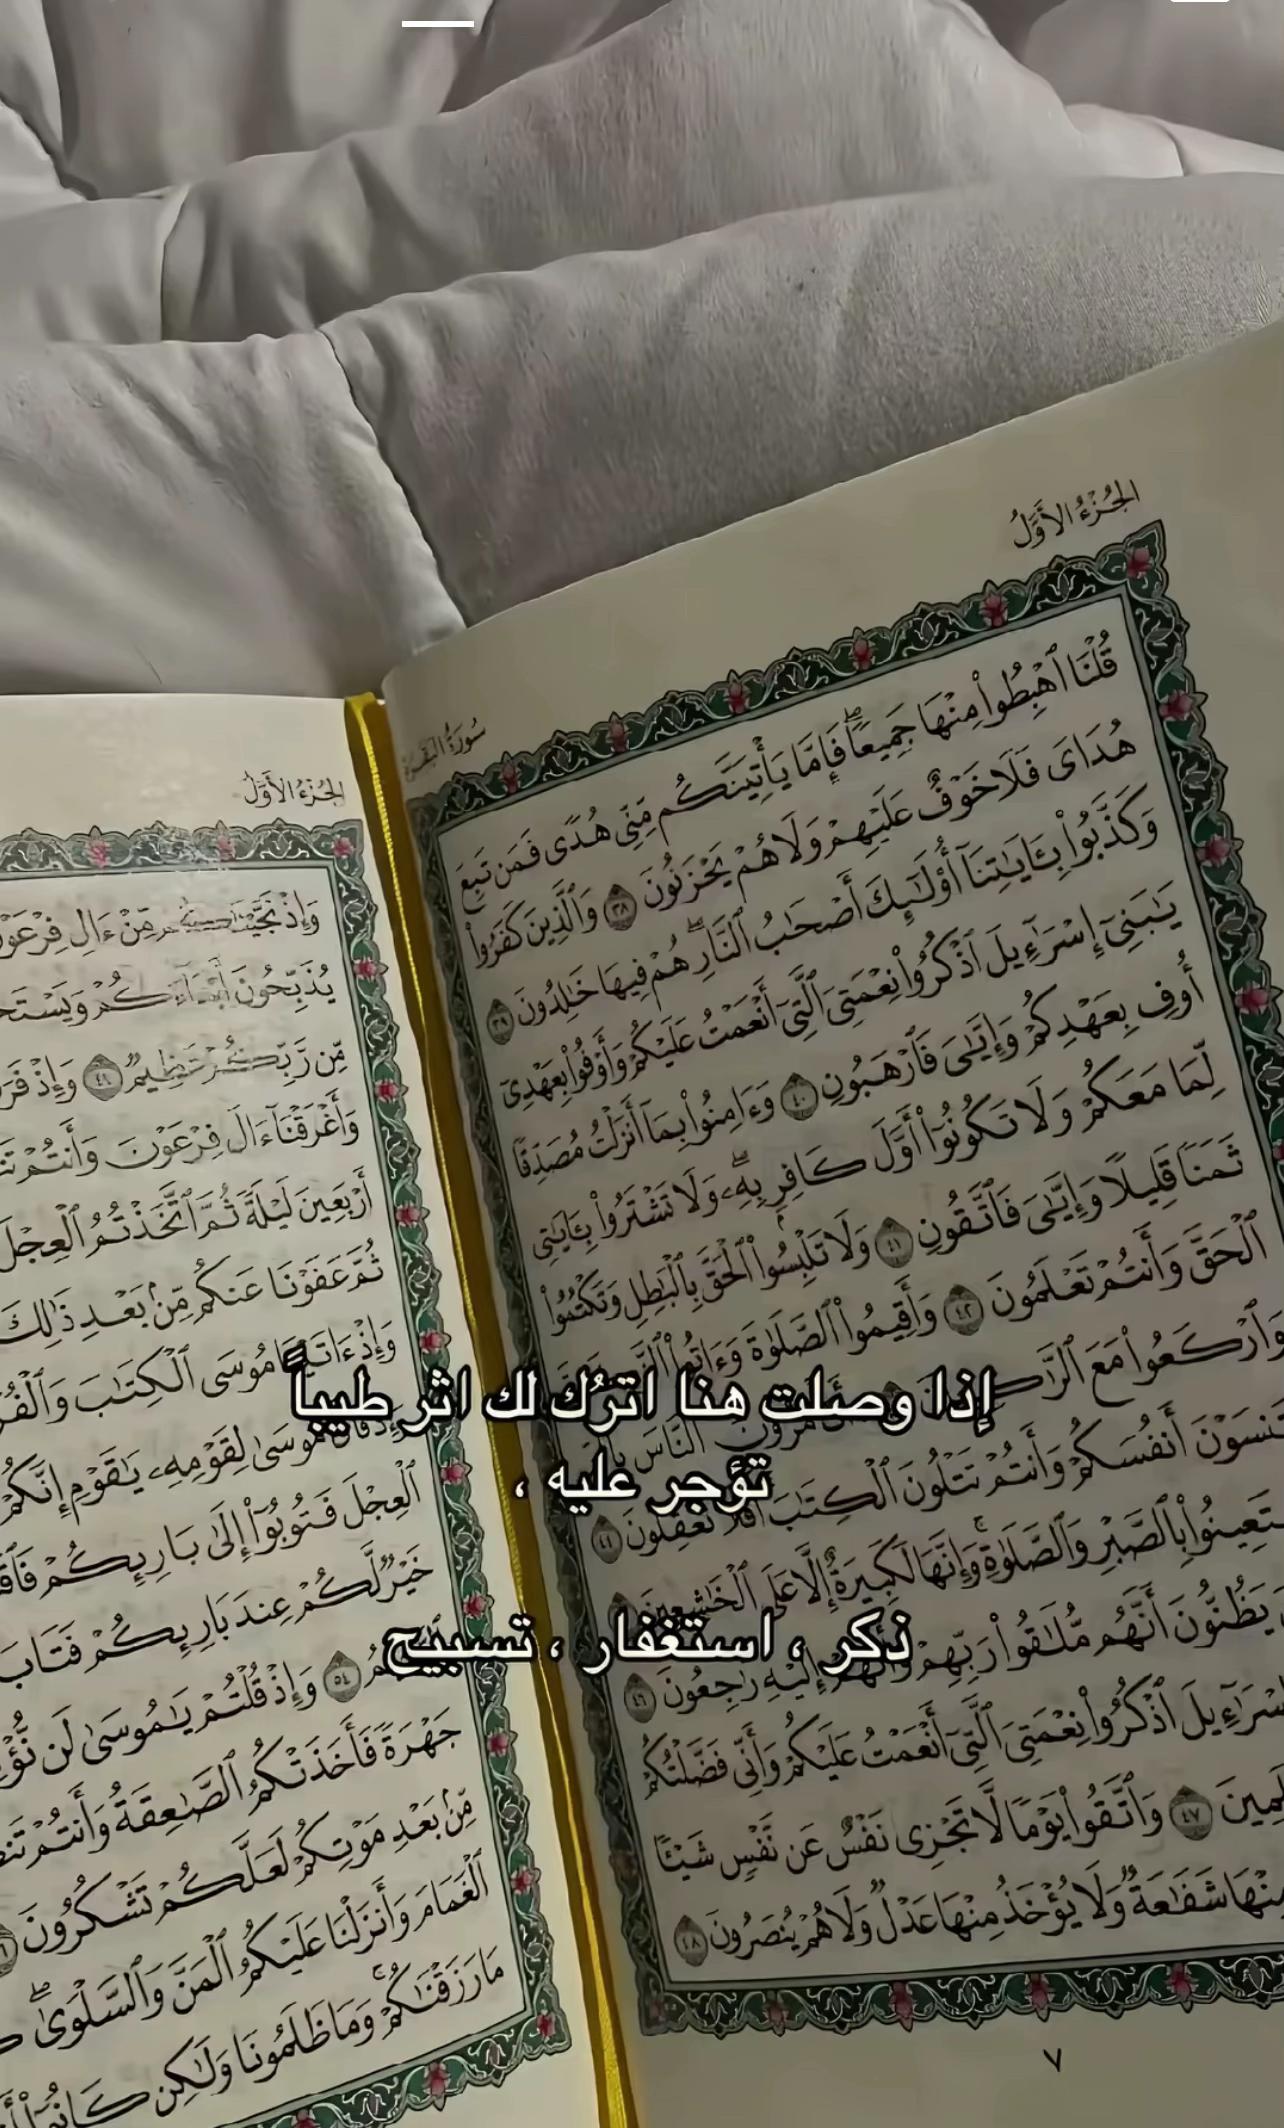 الجُزْءُ الأَوَّلُ
سُورَةُ البَقَرَةِ
قُلْنَا ٱهْبِطُوا۟ مِنْهَا جَمِيعًاۖ فَإِمَّا يَأْتِيَنَّكُم مِّنِّى هُدًى فَمَن تَبِعَ
هُدَاىَ فَلَا خَوْفٌ عَلَيْهِمْ وَلَا هُمْ يَحْزَنُونَ ٣٨ وَٱلَّذِينَ كَفَرُوا۟
وَكَذَّبُوا۟ بِـَٔايَـٰتِنَآ أُو۟لَـٰٓئِكَ أَصْحَـٰبُ ٱلنَّارِۖ هُمْ فِيهَا خَـٰلِدُونَ ٣٩
يَـٰبَنِىٓ إِسْرَٰٓءِيلَ ٱذْكُرُوا۟ نِعْمَتِىَ ٱلَّتِىٓ أَنْعَمْتُ عَلَيْكُمْ وَأَوْفُوا۟ بِعَهْدِىٓ
أُوفِ بِعَهْدِكُمْ وَإِيَّـٰىَ فَٱرْهَبُونِ ٤٠ وَءَامِنُوا۟ بِمَآ أَنزَلْتُ مُصَدِّقًا
لِّمَا مَعَكُمْ وَلَا تَكُونُوٓا۟ أَوَّلَ كَافِرٍۭ بِهِۦۖ وَلَا تَشْتَرُوا۟ بِـَٔايَـٰتِى
ثَمَنًا قَلِيلًا وَإِيَّـٰىَ فَٱتَّقُونِ ٤١ وَلَا تَلْبِسُوا۟ ٱلْحَقَّ بِٱلْبَـٰطِلِ وَتَكْتُمُوا۟
ٱلْحَقَّ وَأَنتُمْ تَعْلَمُونَ ٤٢ وَأَقِيمُوا۟ ٱلصَّلَوٰةَ وَءَاتُوا۟
وَٱرْكَعُوا۟ مَعَ
ٱلنَّاسَ
تَنسَوْنَ أَنفُسَكُمْ وَأَنتُمْ تَتْلُونَ ٱلْكِتَـٰبَ أَفَلَا تَعْقِلُونَ ٤٤
بِٱلصَّبْرِ وَٱلصَّلَوٰةِۚ وَإِنَّهَا لَكَبِيرَةٌ إِلَّا عَلَى ٱلْخَـٰشِعِينَ
يَظُنُّونَ أَنَّهُم مُّلَـٰقُوا۟ رَبِّهِمْ وَأَنَّهُمْ إِلَيْهِ رَٰجِعُونَ ٤٦
ٱذْكُرُوا۟ نِعْمَتِىَ ٱلَّتِىٓ أَنْعَمْتُ عَلَيْكُمْ وَأَنِّى فَضَّلْتُكُمْ
٤٧ وَٱتَّقُوا۟ يَوْمًا لَّا تَجْزِى نَفْسٌ عَن نَّفْسٍ شَيْـًٔا
مِنْهَا شَفَـٰعَةٌ وَلَا يُؤْخَذُ مِنْهَا عَدْلٌ وَلَا هُمْ يُنصَرُونَ ٤٨
٧
الجُزْءُ الأَوَّلُ
وَإِذْ نَجَّيْنَـٰكُم مِّنْ ءَالِ فِرْعَوْنَ
يُذَبِّحُونَ أَبْنَآءَكُمْ
مِّن رَّبِّكُمْ عَظِيمٌ ٤٩ وَإِذْ
وَأَغْرَقْنَآ ءَالَ فِرْعَوْنَ وَأَنتُمْ
أَرْبَعِينَ لَيْلَةً ثُمَّ ٱتَّخَذْتُمُ ٱلْعِجْلَ
ثُمَّ عَفَوْنَا عَنكُم مِّنۢ بَعْدِ ذَٰلِكَ
وَإِذْ ءَاتَيْنَا مُوسَى ٱلْكِتَـٰبَ
مُوسَىٰ لِقَوْمِهِۦ يَـٰقَوْمِ إِنَّكُمْ
ٱلْعِجْلَ فَتُوبُوٓا۟ إِلَىٰ بَارِئِكُمْ
خَيْرٌ لَّكُمْ عِندَ بَارِئِكُمْ فَتَابَ
٥٤ وَإِذْ قُلْتُمْ يَـٰمُوسَىٰ لَن
جَهْرَةً فَأَخَذَتْكُمُ ٱلصَّـٰعِقَةُ وَأَنتُمْ
مِّنۢ بَعْدِ مَوْتِكُمْ لَعَلَّكُمْ تَشْكُرُونَ
ٱلْغَمَامَ وَأَنزَلْنَا عَلَيْكُمُ ٱلْمَنَّ وَٱلسَّلْوَىٰۖ
مَا رَزَقْنَـٰكُمْۚ وَمَا ظَلَمُونَا وَلَـٰكِن
إذا وصلت هنا اترُك لك اثر طيباً
تؤجر عليه ،
ذكر ، استغفار ، تسبيح